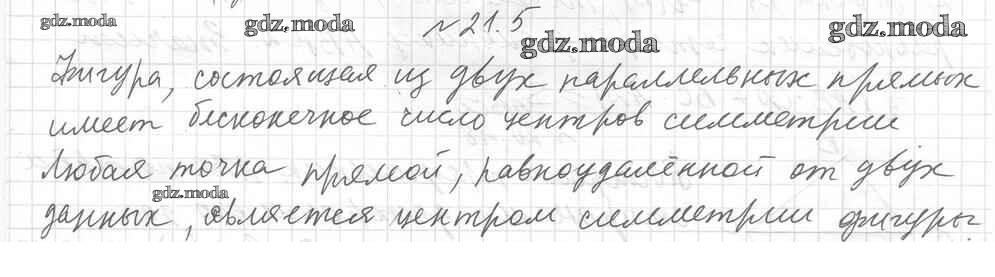 gdz.moda gdz.moda №21.5 gdz.moda gdz.moda
Фигура, состоящая из двух параллельных прямых
имеет бесконечное число центров симметрии
Любая точка прямой, равноудалённой от двух
gdz.moda
данных, является центром симметрии фигуры.